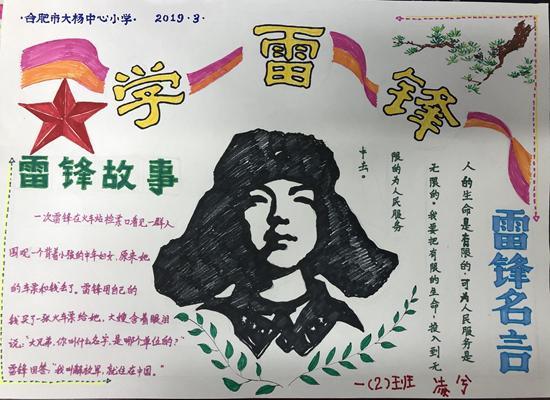 ·合肥市大杨中心小学· 2019·3·
学雷锋
雷锋故事
一次雷锋在火车站检票口看见一群人
围观一个背着小孩的中年妇女,原来她
的车票和钱丢了。雷锋用自的
钱买了一张火车票给她,大嫂含着眼泪
说:"大兄弟,你叫什么名字,是哪个单位的?"
雷锋回答:"我叫解放军,就住在中国。"
雷锋名言
人的生命是有限的,可为人民服务是
无限的,我要把有限的生命,投入到无
限的为人民服务
中去。
一(2)王班